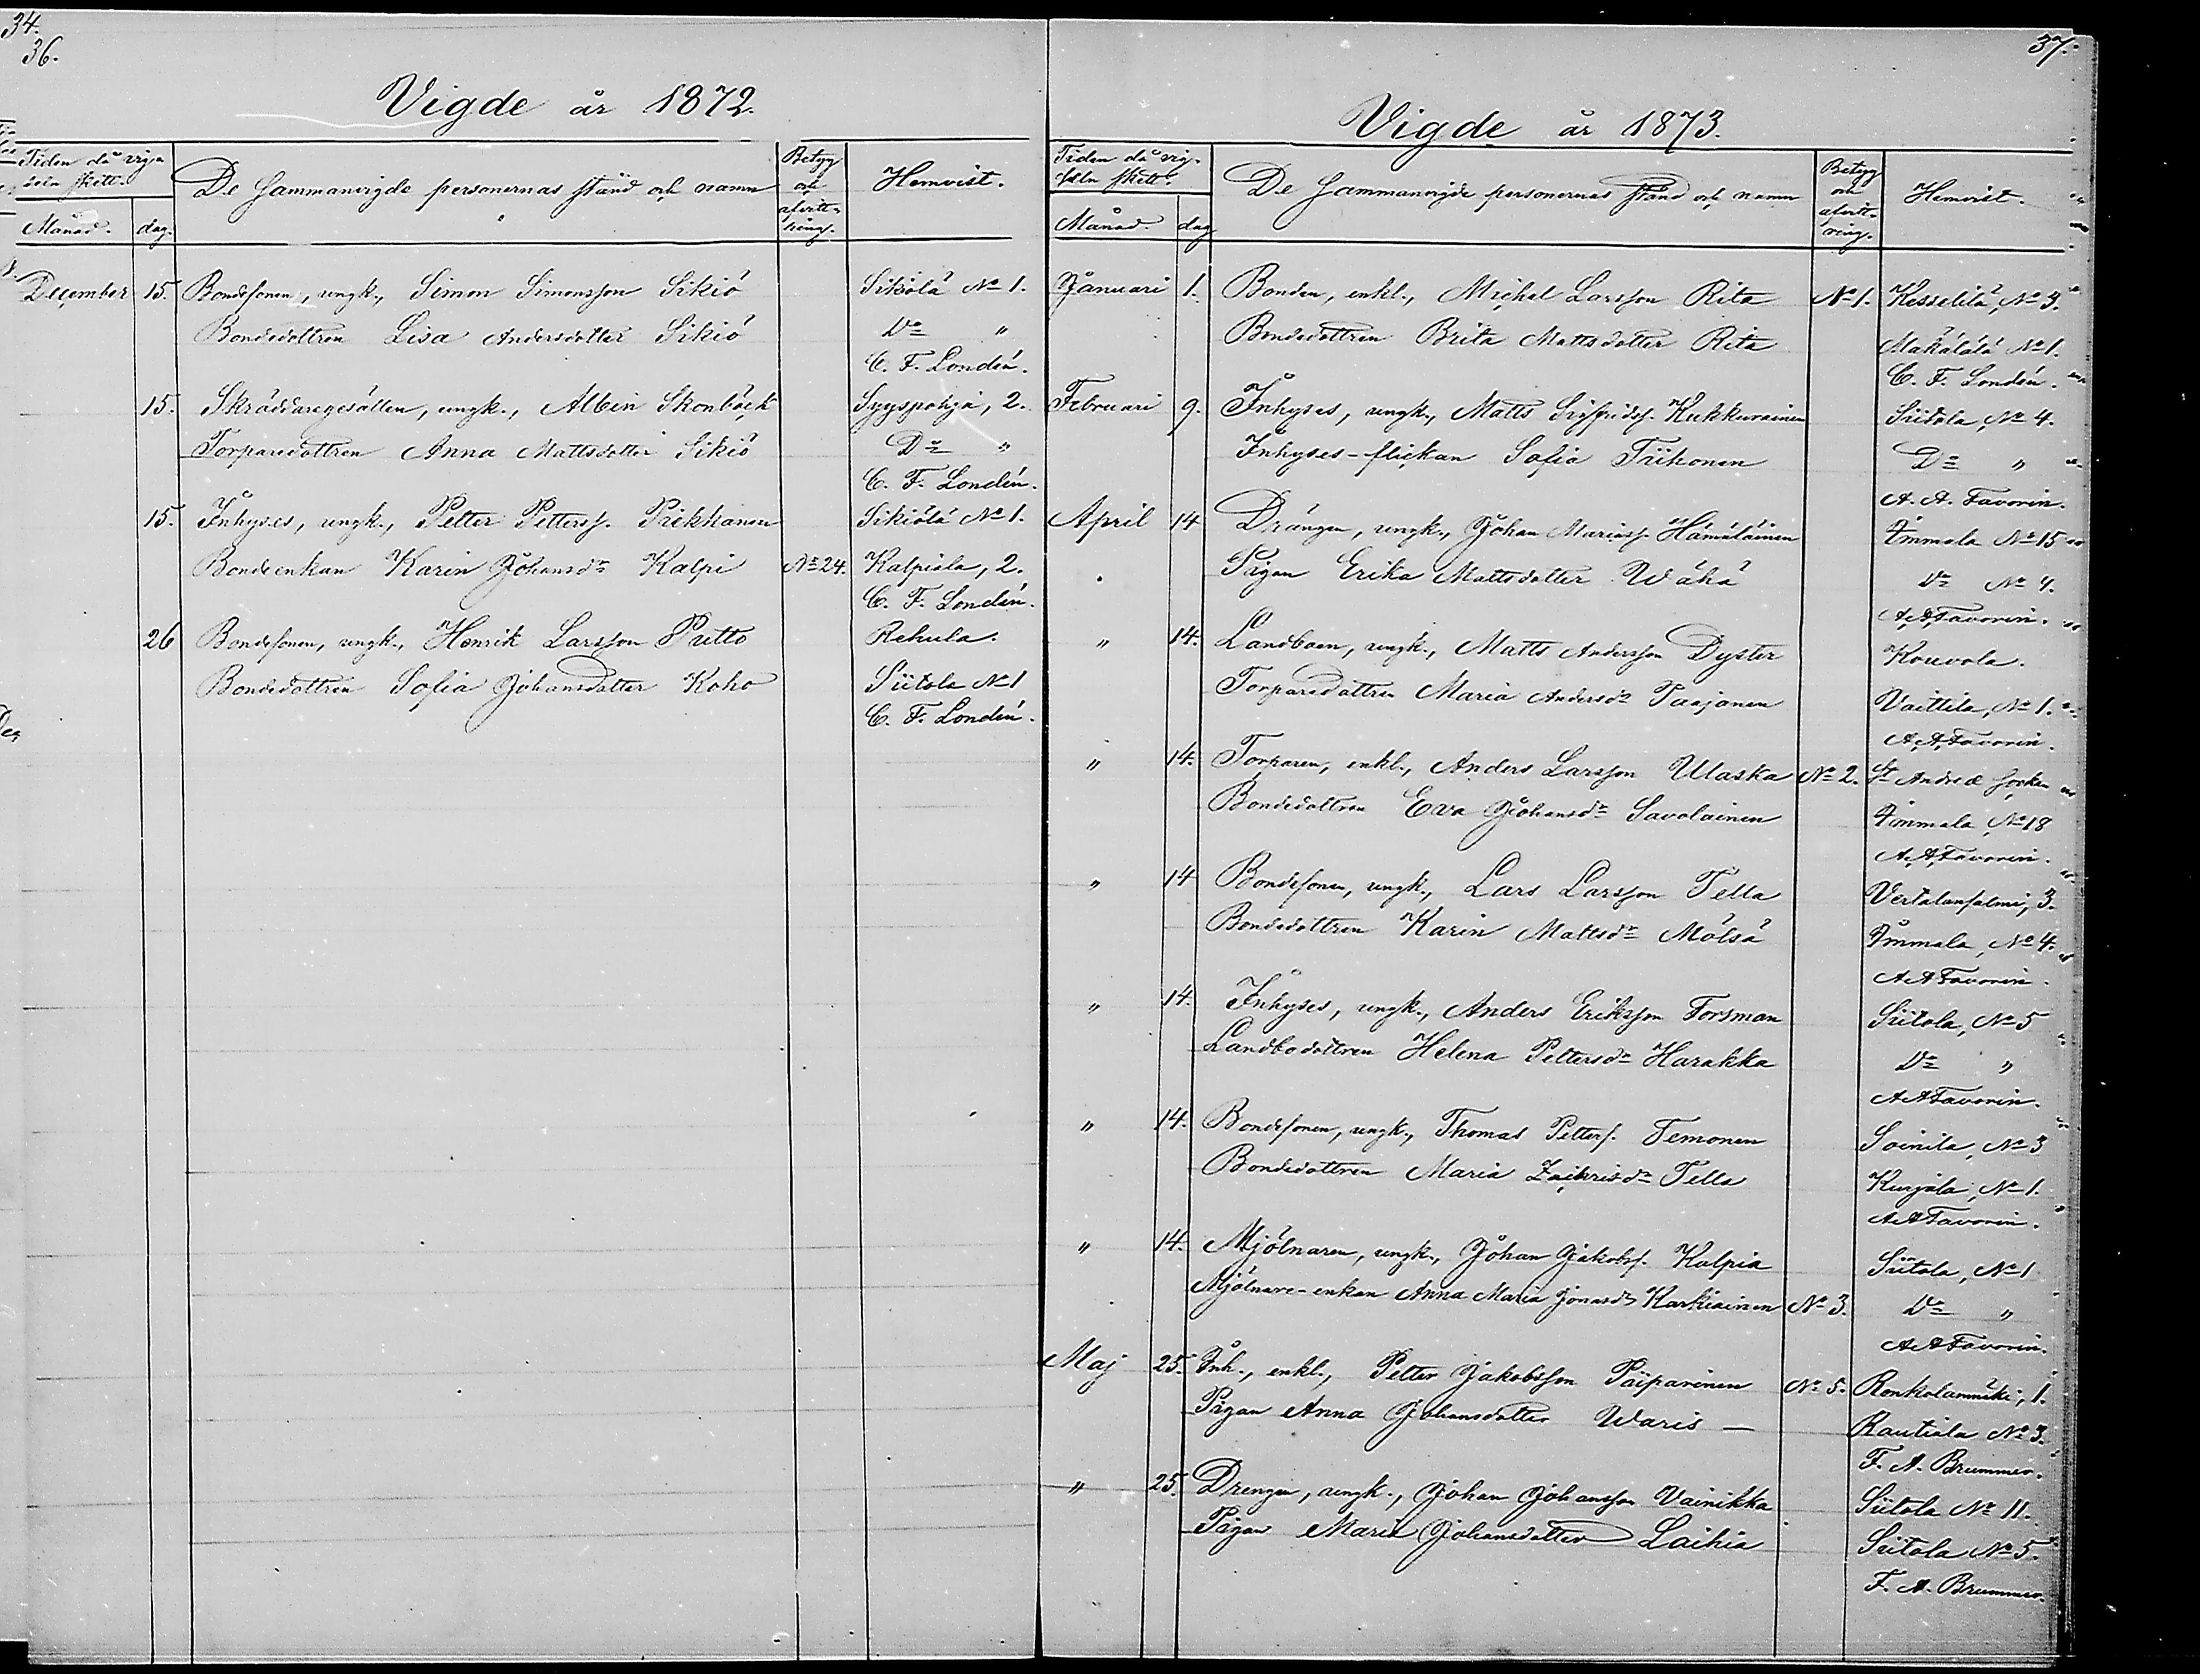 34.
36.
Vigde år 1872.
Tiden då vig-
seln skett.
Månad. dag.
De sammanvigde personernas stånd och namn
Betyg och afvitt-
ring.
Hemvist.
December 15. Bondesonen, ungk., Simon Simonsson Sikiö Sikiölä No 1.
Bondedottren Lisa Andersdotter Sikiö Do "
C. F. Londén.
15. Skräddaregesällen, ungk., Albin Skonbäck Syyspohja, 2.
Torparedottren Anna Mattsdotter Sikiö Do "
C. F. Londén.
15. Inhyses, ungk., Petter Petterss. Pirkhanen Sikiölä No 1.
Bondeenkan Karin Johansdr Kalpi No 24. Kalpiala, 2.
C. F. Londén.
26 Bondesonen, ungk., Henrik Larsson Putto Rehula.
Bondedottren Sofia Johansdotter Koho Siitola No 1
C. F. Londén.
37.
Vigde år 1873.
Tiden då vig-
seln skett.
Månad. dag
De sammanvigde personernas stånd och namn
Betyg och afvitt-
ring.
Hemvist.
Januari 1. Bonden, enkl., Michel Larsson Rita No 1. Kesselilä, No 3.
Bondedottren Brita Mattsdotter Rita Mäkälälä No 1.
C. F. Londén.
Februari 9. Inhyses, ungk., Matts Sigfridss. Kukkurainen Siitola, No 4.
Inhyses-flickan Sofia Tiihonen Do "
A. A. Favorin.
April 14 Drängen, ungk., Johan Mariass. Hämäläinen Immala No 15
Pigan Erika Mattsdotter Wähä Do No 4.
A. A. Favorin.
" 14. Landboen, ungk., Matts Andersson Dyster Kouvola.
Torparedottren Maria Andersdr Paajanen Vaittila, No 1.
A. A. Favorin.
" 14. Torparen, enkl., Anders Larsson Ulaska No 2. St Andreæ socken
Bondedottren Eva Johansdr Savolainen Immala, No 18
A. A. Favorin.
" 14 Bondesonen, ungk., Lars Larsson Tella Vertalansalmi, 3.
Bondedottren Karin Mattsdr Mölsä Immala, No 4.
A A Favorin.
" 14. Inhyses, ungk., Anders Eriksson Forsman Siitola, No 5
Landbodottren Helena Pettersdr Harakka Do "
A A Favorin.
" 14. Bondesonen, ungk., Thomas Petters. Temonen Soinila, No 3
Bondedottren Maria Zachrisdr Tella Kurjala, No 1.
A A Favorin.
" 14. Mjölnaren, ungk., Johan Jakobss. Kalpia Siitola, No 1
Mjölnare-enkan Anna Maria Jonasdr Karkiainen No 3. Do "
A A Favorin.
Maj 25. Inh., enkl., Petter Jakobsson Päiparinen No 5. Ronkolanmäki, 1.
Pigan Anna Johansdotter Waris — Rautiala No 3.
F. A. Brummer.
" 25. Drengen, ungk., Johan Johansson Vainikka Siitola No 11.
Pigan Maria Johansdotter Laihia Siitola No 5.
F. A. Brummer.